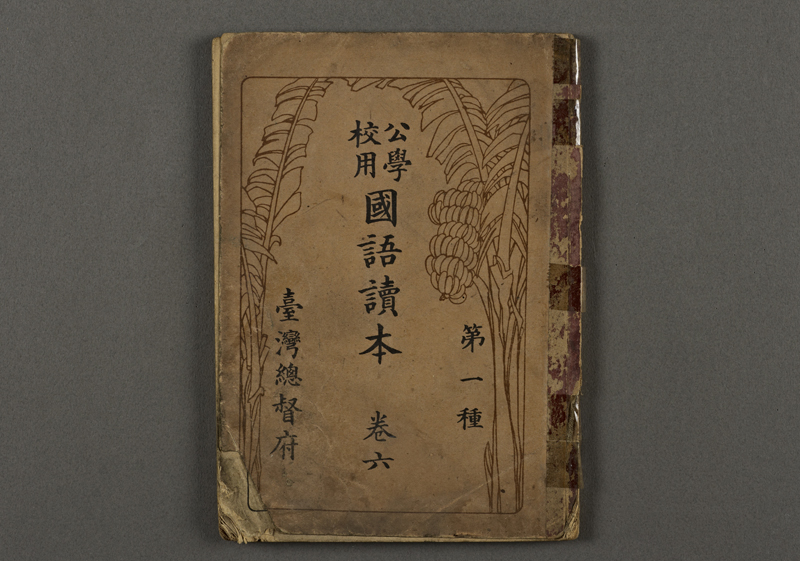 第一種
公學
校用
國語讀本 卷六
臺灣總督府